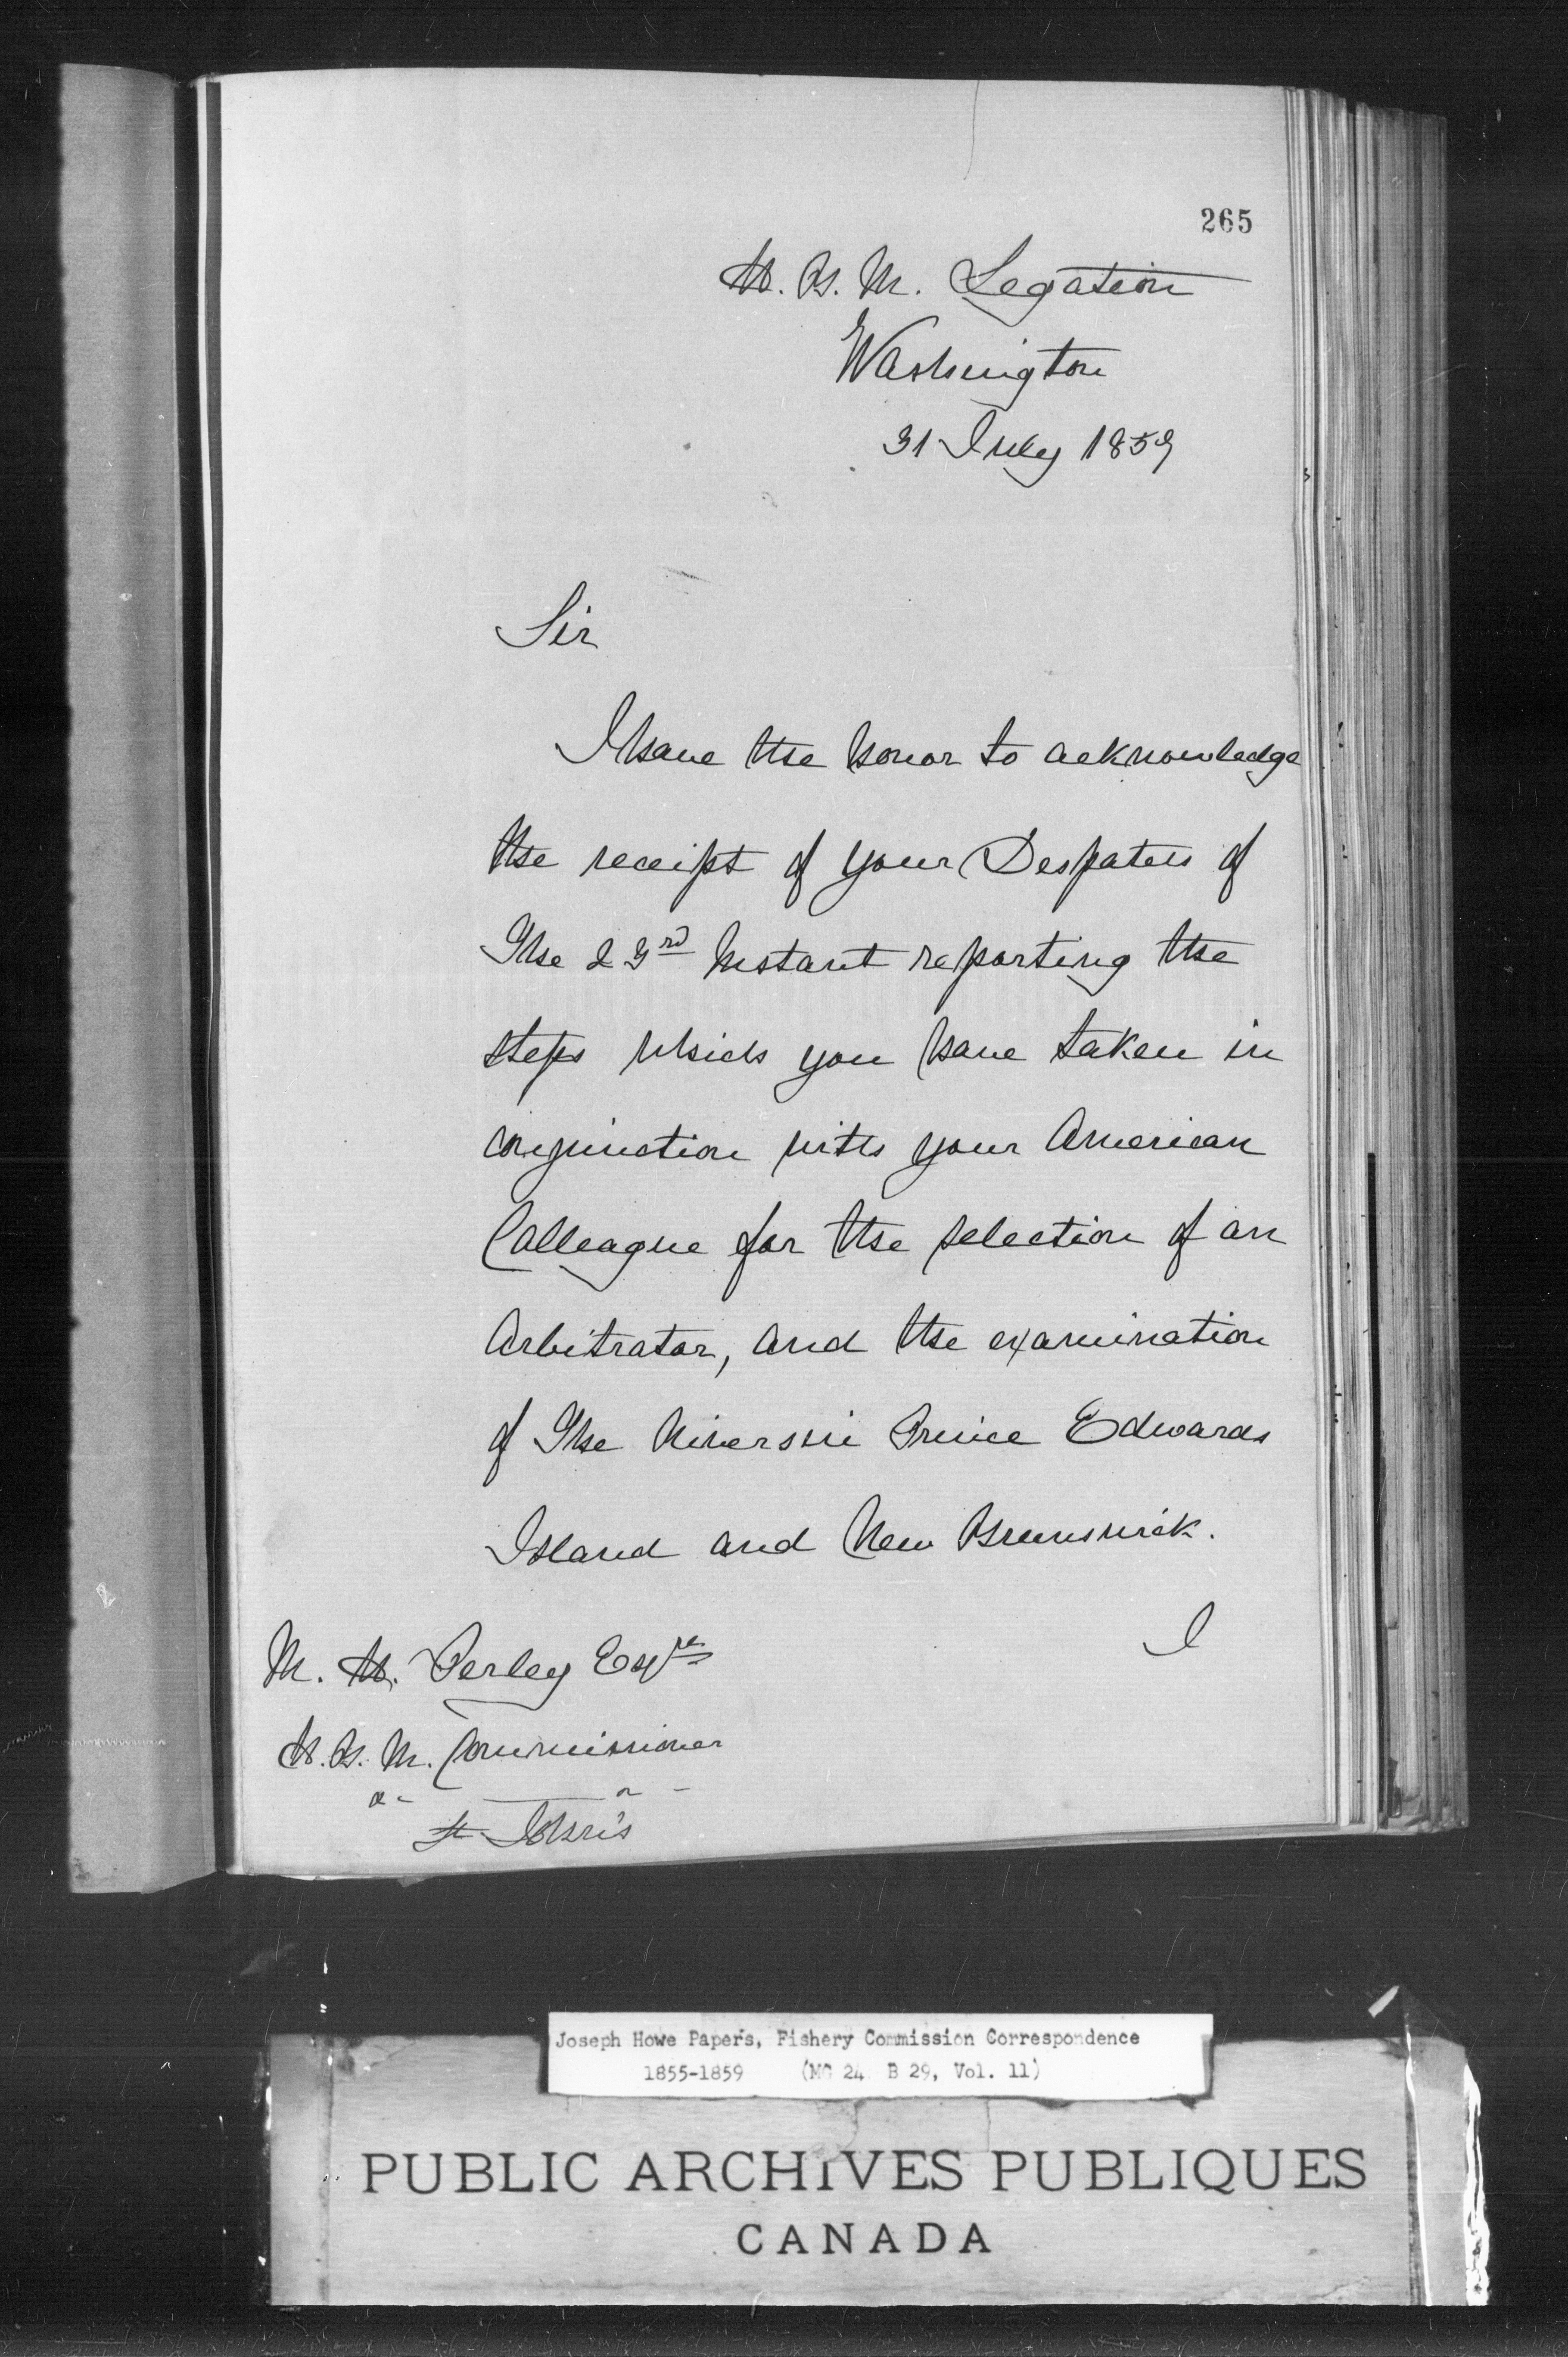 265
H. B. M. Legation
Washington
31 July 1859
Sir
I have the honor to acknowledge
the receipt of your Despatch of
The 23rd Instant reporting the
steps which you have taken in
conjunction with your American
Colleague for the selection of an
Arbitrator, and the examination
of The Rivers in Prince Edwards
Island and New Brunswick.
I
M. H. Perley Esqre
H. B. M. Commissioner
St. John's
Joseph Howe Papers, Fishery Commission Correspondence
1855-1859 (MG 24 B 29, Vol. 11)
PUBLIC ARCHIVES PUBLIQUES
CANADA